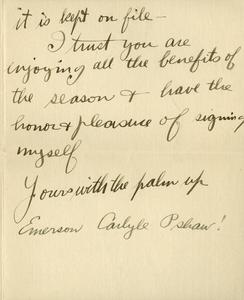 it is kept on file—
I trust you are
enjoying all the benefits of
the season & have the
honor & pleasure of signing
myself
Yours with the palm up
Emerson Carlyle Pshaw!